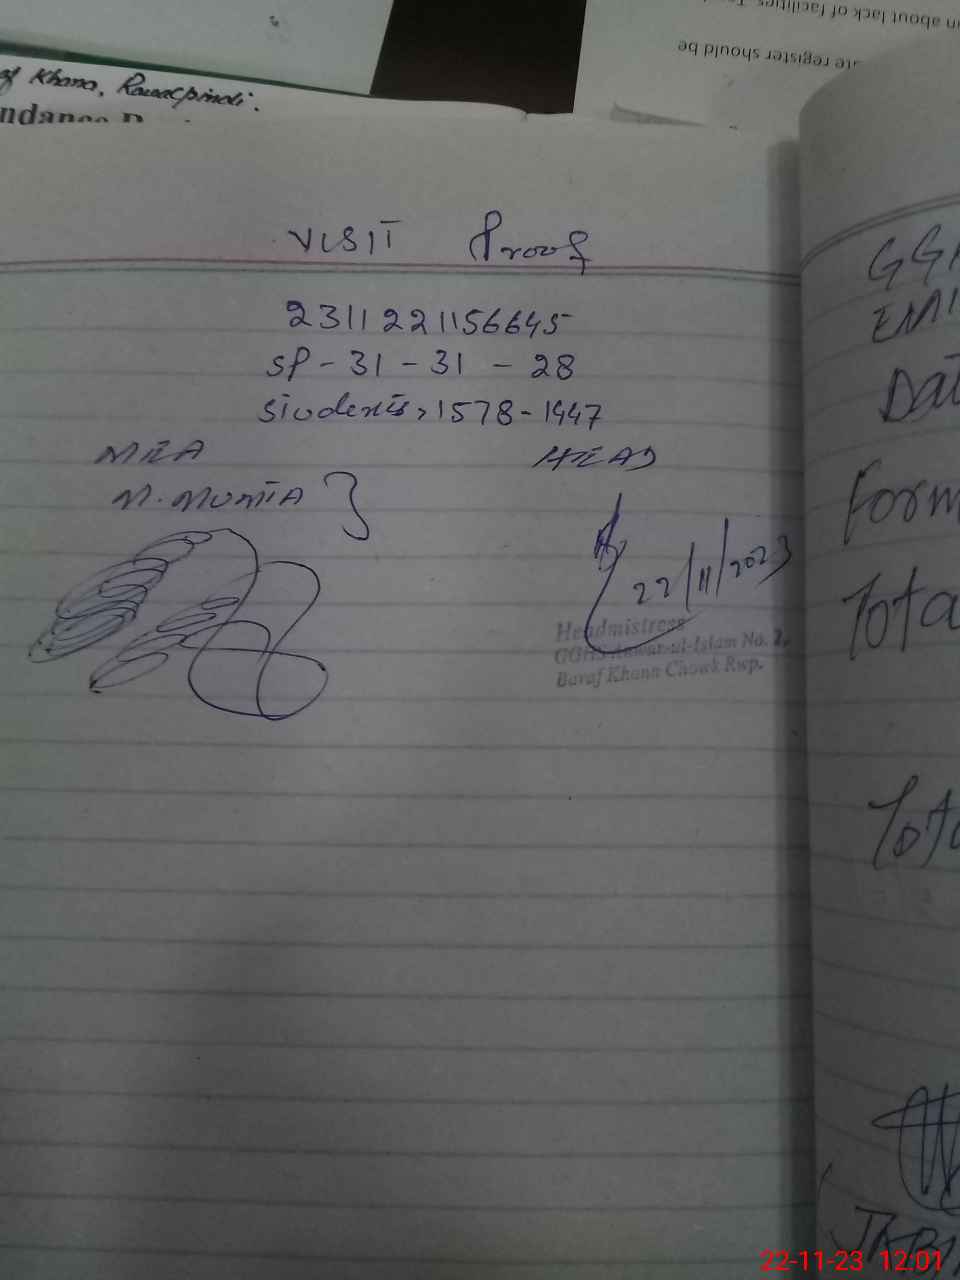 n about lack of facilities. T
ate register should be
of Khana, Rawalpindi.
ndance R
VISIT Proof
2311221156645
SP - 31 - 31 - 28
Students, 1578 - 1447
MEA
HEAD
M. MUNTA
22/11/2023
Headmistress
GGHS Anwar-ul-Islam No. 2,
Baraf Khana Chowk Rwp.
GGH
EMI
Dat
Form
Tota
Tota
JABI
22-11-23 12:01